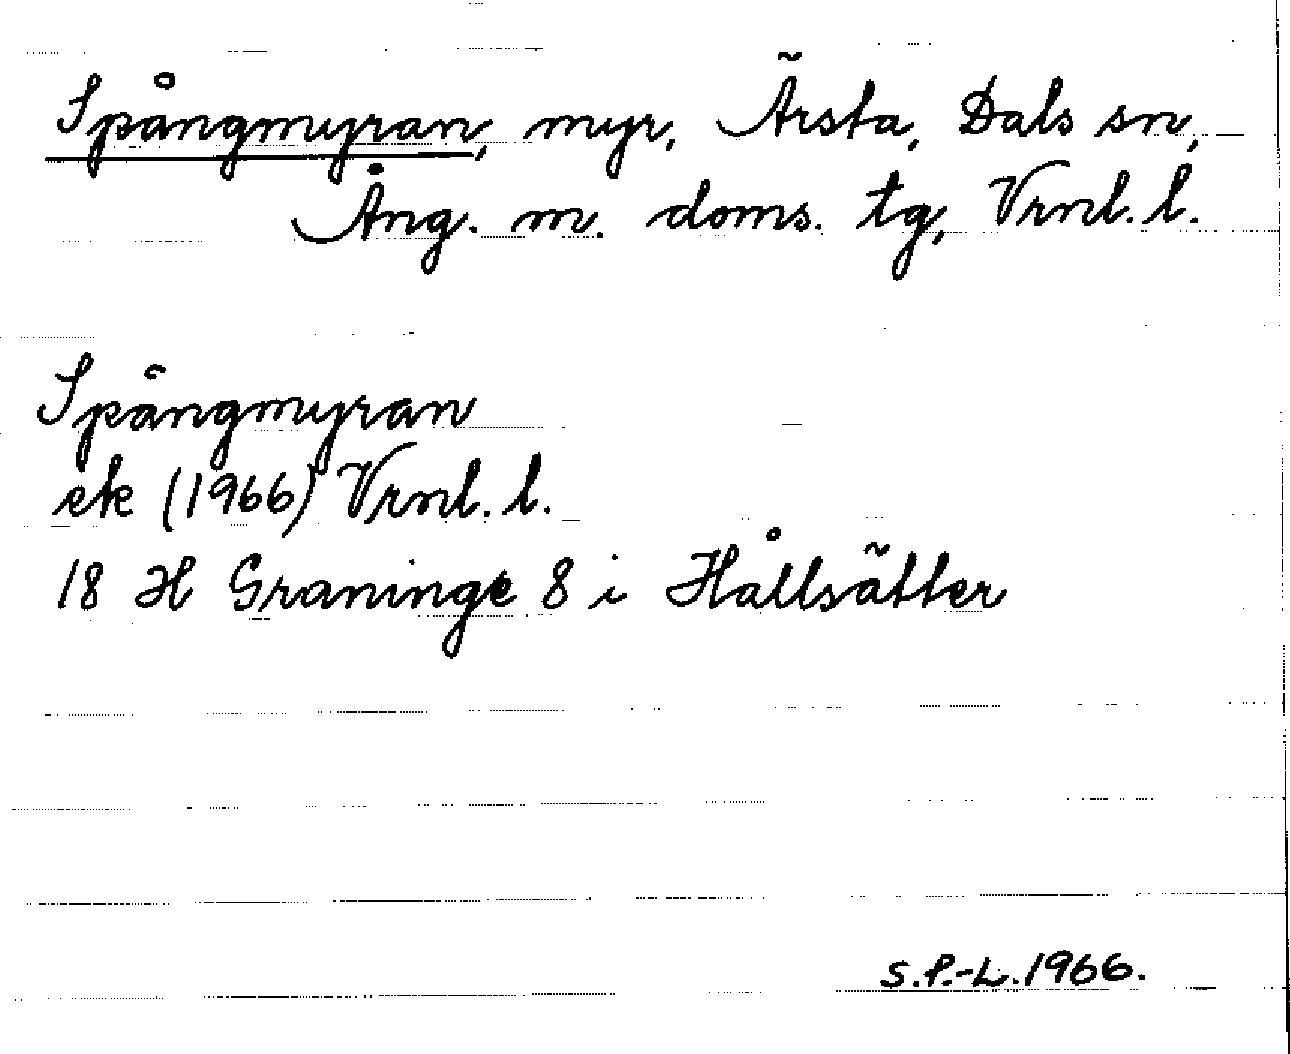 Spångmyran, myr, Ärsta, Dals sn,
Ång. m. doms. tg, Vrnl. l.
Spångmyran
ek (1966) Vrnl. l.
18 H Graninge 8 i Hållsätter
S.P.-L. 1966.